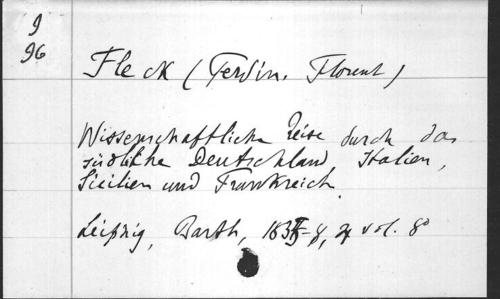 9
96
Fleck (Ferdin. Florent)
Wissenschaftliche Reise durch das
südliche Deutschland, Italien,
Sicilien und Frankreich.
Leipzig, Barth, 1835-8, 4 vol. 8°